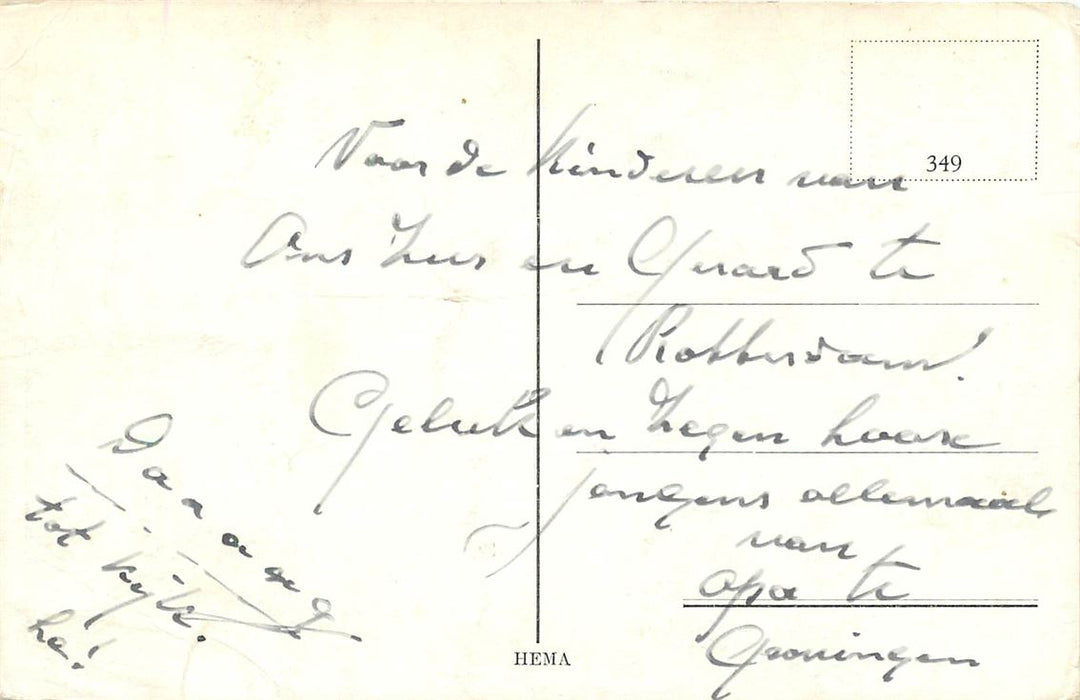 349
Voor de Kinderen van
Ons Zus en Gerard te
Rotterdam!
Geluk en Zegen hoore
jongens allemaal
van
opa te
Groningen
Daaaag
tot kijk.
he!
HEMA